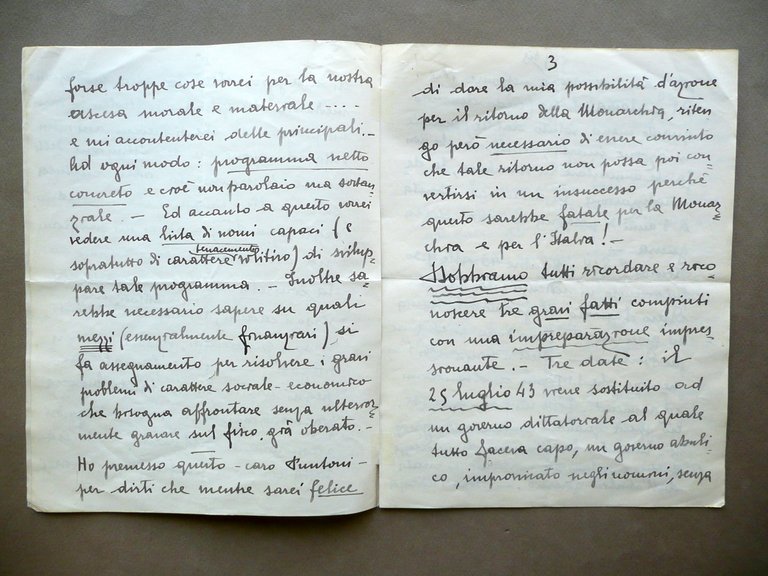 forse troppe cose vorrei per la nostra
ascesa morale e materiale ....
e mi accontenterei delle principali. –
Ad ogni modo: programma netto
concreto e cioè non parolaio ma sostan=
ziale. – Ed accanto a questo vorrei
vedere una lista di nomi capaci (e
sopratutto di carattere tenacemente volitivo) di svilup=
pare tale programma. – Inoltre sa=
rebbe necessario sapere su quali
mezzi (essenzialmente finanziari) si
fa assegnamento per risolvere i gravi
problemi di carattere sociale-economico
che bisogna affrontare senza ulterior=
mente gravare sul fisco, già oberato. –
Ho premesso questo – caro Puntoni –
per dirti che mentre sarei felice
3
di dare la mia possibilità d'azione
per il ritorno della Monarchia, riten=
go però necessario di essere convinto
che tale ritorno non possa poi con=
vertirsi in un insuccesso perché
questo sarebbe fatale per la Monar=
chia e per l'Italia! –
Dobbiamo tutti ricordare e rico=
noscere tre gravi fatti compiuti
con una impreparazione impres=
sionante. – Tre date: il
25 luglio 43 viene sostituito ad
un governo dittatoriale al quale
tutto faceva capo, un governo abuli=
co, improvvisato negli uomini, senza